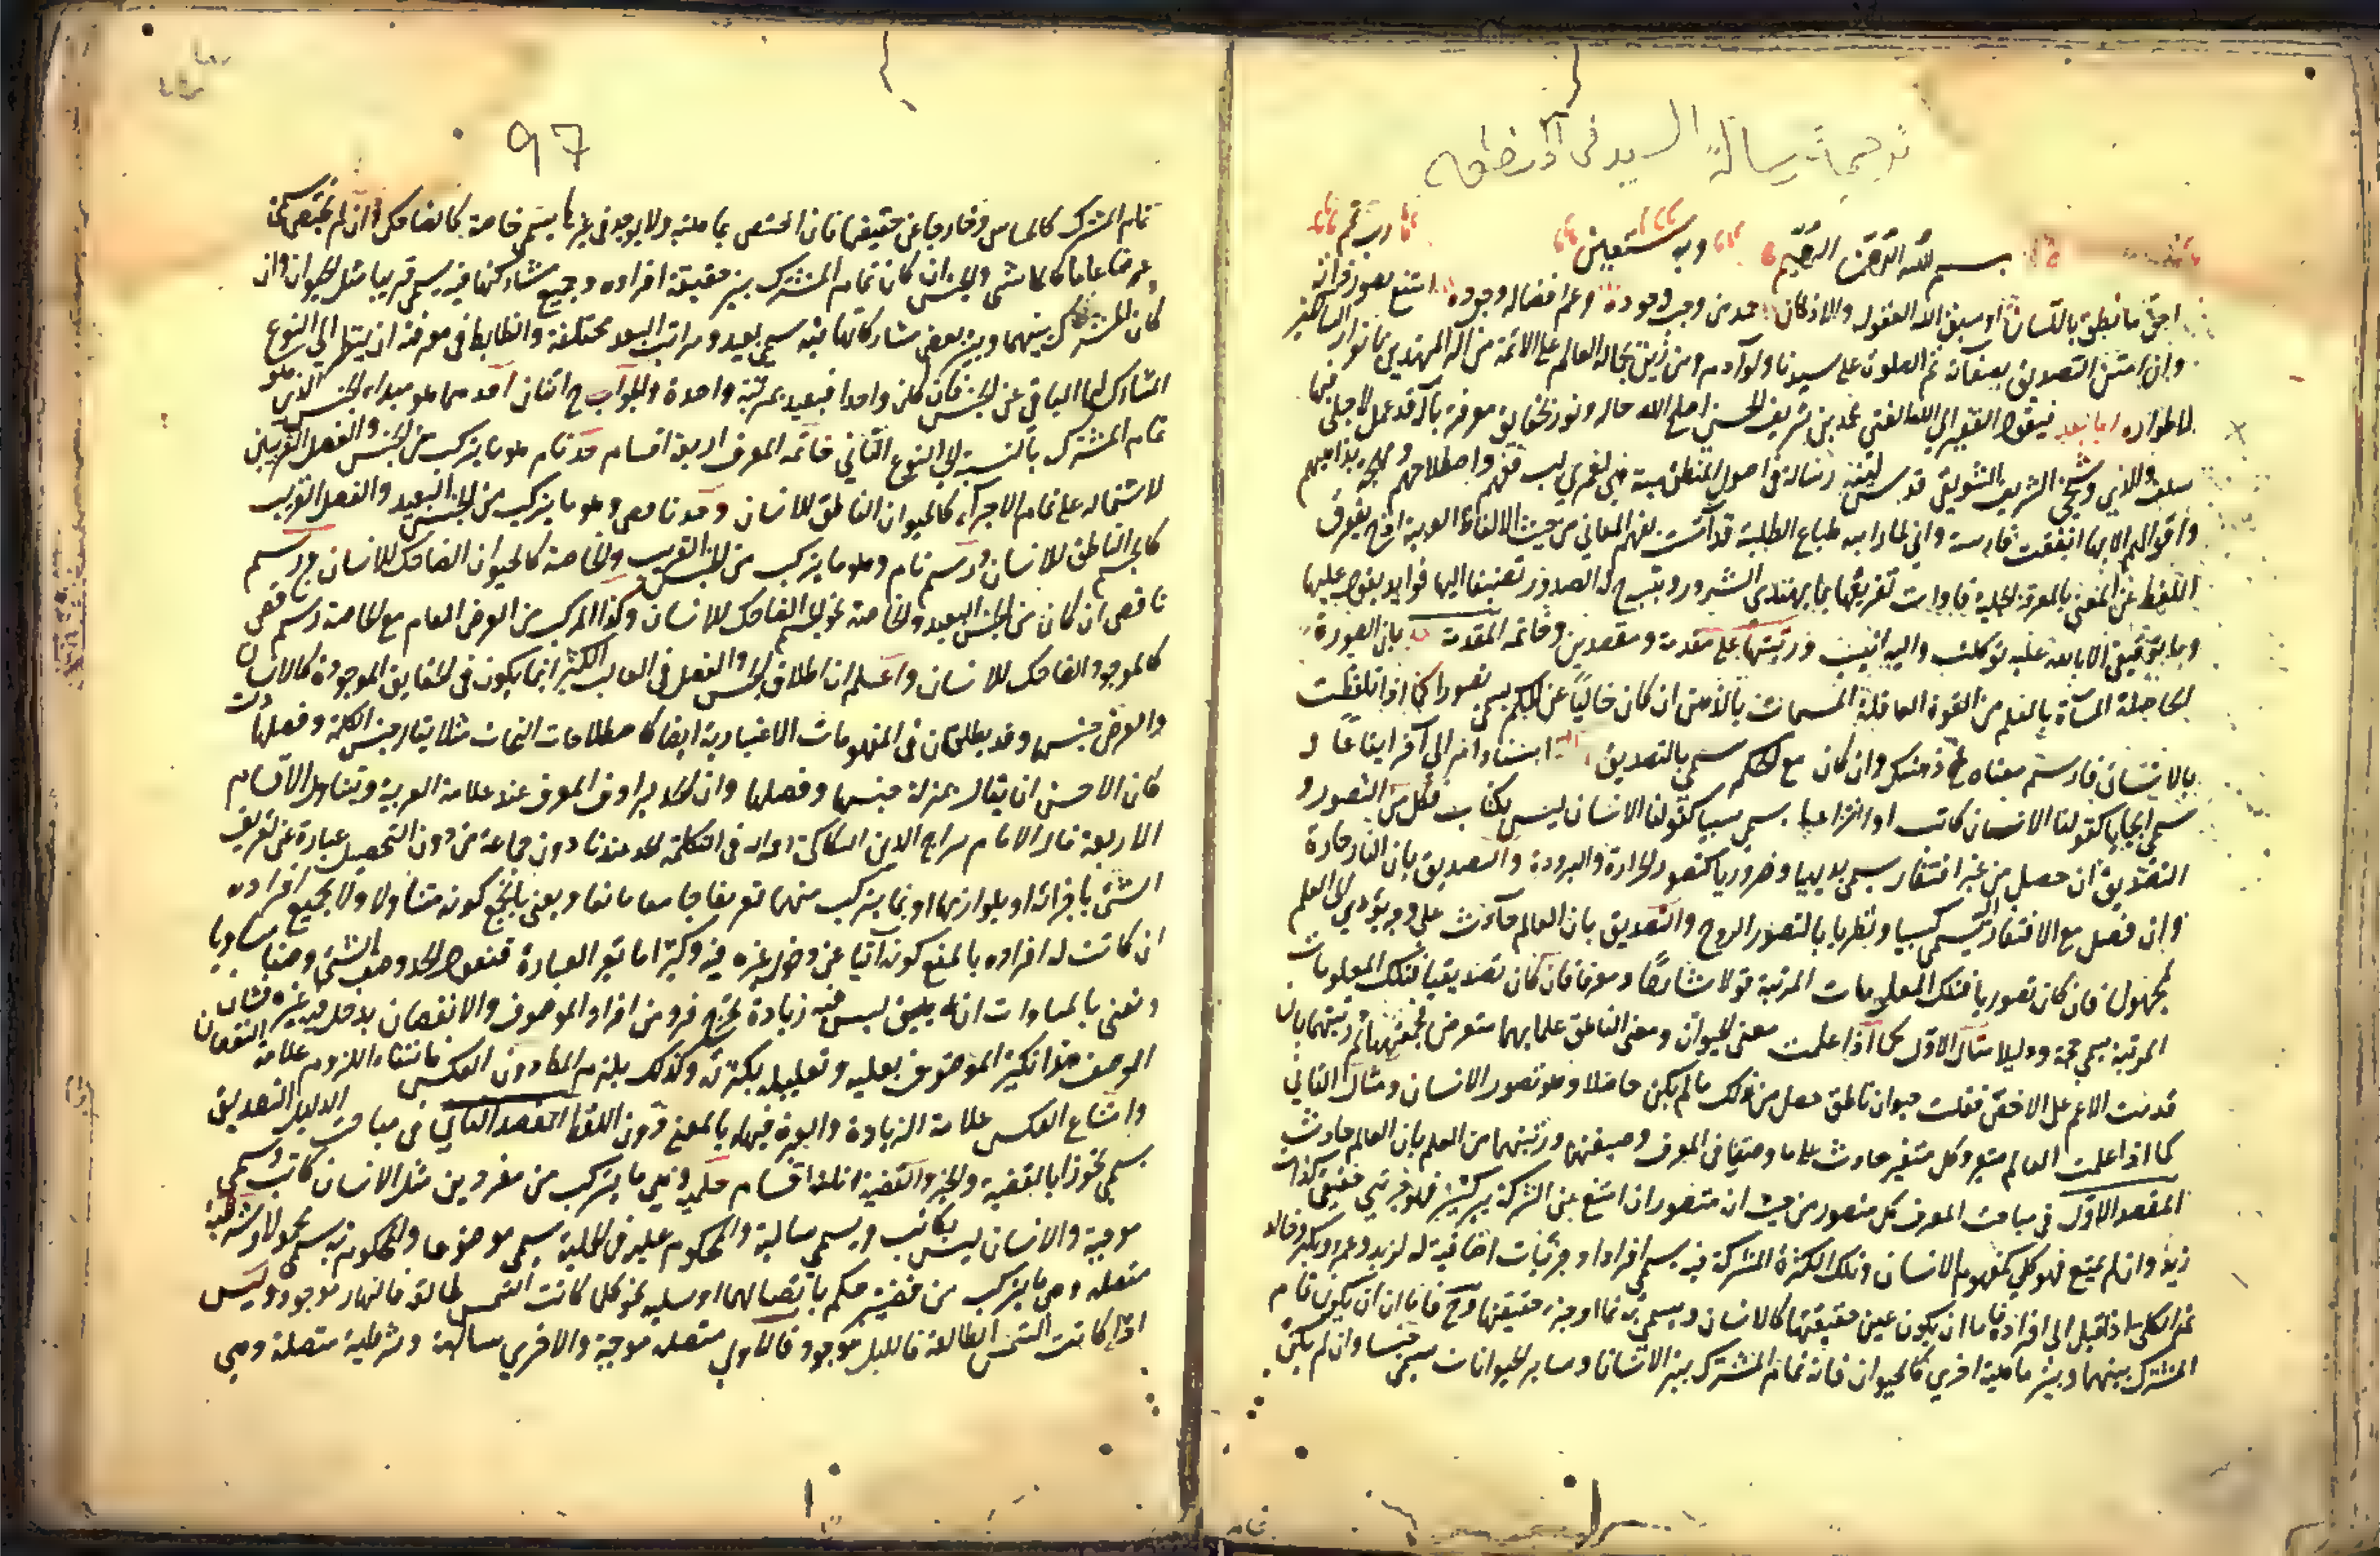 ترجمة رسالة السيد في المنطق
بسم الله الرحمن الرحيم وبه نستعين رب تمم
احق ما نطق به اللسان او سبق اليه العقول والاذهان حمد من وجب وجوده وعم افضاله وجوده امتنع تصور ذاته
وان امتنى التصديق بصفاته ثم الصلوة على سيدنا ولد آدم ومن زين بجماله العالم على الائمة من اله المهتدين بانوار
لاطواره اما بعد فيقول الفقير الى الله الغني محمد بن شريف الحسني اصلح الله حاله ونور بحقايق معرفة باله قد عمل لاجلي فيما
سلف والدي وشيخي الشريف الشريفي قدس نفسه رسالة في اصول المنطق مبينة هي لعمري لب فنهم واصطلاحهم
واقوالهم الا انها اتفقت فارسية واني لما رايت طباع الطلبة قد آنست بفهم المعاني من حيث الالفاظ العربية
اللفظ عن المعنى بالمعرفة الجلية فاردت تعريبها بما يهتدى الشيرور وتنشرح له الصدور تضيفا اليها فوايد يعول عليها
وما توفيقي الا بالله عليه توكلت واليه انيب ورتبتها على مقدمة ومقصدين وخاتمه المقدمة بان الصورة
الحاصلة المسماة بالعلم من القوة العاقلة المسمات بالذهن ان كان خاليا عن الحكم يسمى تصورا كما اذا تلفظت
بالانسان فارتسم معناه في ذهنك وان كان مع الحكم سمي بالتصديق اسناد امر الى آخر ايقاعا و
سمي ايجابا كقولنا الانسان كاتب او انتزاعيا يسمى سلبا كقولنا الانسان ليس بكاتب فكل من التصور و
التصديق ان حصل من غير افتقار يسمى بديهيا وضروريا كتصور الحرارة والبرودة والتصديق بان النار حارة
وان حصل مع الافتقار يسمى كسبيا ونظريا بالتصور الروح والتصديق بان العالم حادث على وجه يؤدي الى العلم
بمجهول فان كان تصوريا فتلك المعلومات المرتبة قولا شارحا ومعرفا فان كان تصديقيا فتلك المعلومات
المرتبة يسمى حجة ودليلا مثال الاول كما اذا علمت معنى الحيوان ومعنى الناطق علما بهما متعرض لجمعتهما ثم رتبتهما بان
قدمت الاعم على الاخص فقلت حيوان ناطق حصل من ذلك ما لم يكن حاصلا وهو تصور الانسان ومثال الثاني
كما اذا علمت العالم متغير وكل متغير حادث علما وصفتا في المعرف وصفتهما ورتبتهما من العلم بان العالم حادث
المقصد الاول في مباحث المعرف كل متصور من حيث ان متصور ان امتنع عن الشركة بين كثيرين فهو جزئي حقيقي كذات
زيد وان لم يمتنع فهو كلي كمفهوم الانسان وتلك الكثرة المشتركة فيه يسمى افرادا وجزئيات اضافية له لزيد وعمرو وبكر وخالد
ثم الكلي اذا قيل الى افراده فاما ان يكون عين حقيقتها كالانسان ويسمى نوعا او جزء حقيقتها وح فاما ان يكون تمام
المشترك بينهما وبين ماهية اخرى كالحيوان فانه تمام المشترك بين الانسان وساير الحيوانات سمي جنسا وان لم يكن
97
تمام المشترك كالحساس وخارجا عن حقيقتها فان اختص بماهية ولا يوجد في غيرها يسمى خاصة كالضاحك وان لم يختص سمي
عرضا عاما كالماشي والجنس ان كان تمام المشترك بين حقيقة افراده وجميع مشاركتها فيه يسمى قريبا مثل الحيوان وان
كان المشترك بينهما وبين بعض مشاركاتها فيه سمي بعيد ومراتب البعد مختلفة والضابط في معرفته ان ينظر الى النوع
المشارك لها الباقي عن الجنس فان كان واحدا فبعيد بمرتبة واحدة والجواب ح اثنان احدهما هو مبداء الجنس الاخر هو
تمام المشترك بالنسبة الى النوع الثاني خاتمه المعرف اربعة اقسام حد تام هو ما يتركب من الجنس والفصل القريبين
لاشتماله على تمام الاجزاء كالحيوان الناطق للانسان وحد ناقص وهو ما يتركب من الجنس البعيد والفصل القريب
كالجسم الناطق للانسان ورسم تام وهو ما يتركب من الجنس القريب والخاصة كالحيوان الضاحك للانسان ورسم
ناقص ان كان من الجنس البعيد والخاصة نحو الجسم الضاحك للانسان وكذا المركب من العرض العام مع الخاصة رسم ناقص
كالموجود الضاحك للانسان واعلم ان اطلاق الجنس والفصل في الغالب الكثير انما يكون في الحقايق الموجودة كالانسان
والفرس جنس وقد يطلقان في المفهومات الاعتبارية ايضا كاصطلاحات النحات مثلا يقال جنس الكلمة وفصلها
كان الاحسن ان يقال بمنزلة جنسها وفصلها وان الحد يرادف المعرف عند علامة العربية ويتناول الاقسام
الاربعة قال الامام سراج الدين السكاكي رحمه الله في التكملة الحد عندنا دون جماعة من ذوي التحصيل عبارة عن تعريف
الشئ باجزائه او بلوازمها او بما يتركب منهما تعريفا جامعا مانعا ويعني بالجمع كونه متناولا ولا بجميع افراده
ان كانت له افراده بالمنع كونه آتيا عن دخول غيره فيه وكثيرا ما تغير العبارة فنقول الحد وصف الشئ وصفا مساويا
ونعني بالمساوات ان ليس فيه زيادة تخرج فردا من افراد الموصوف والانقصان يدخل فيه غيره فشان
الوصف هذا تكثير الموصوف بعليه وتقليله بكثرته وكذلك يلزمه الطاردون العكس فانتفاء اللزوم علامة النقصان
وامتناع العكس علامة الزيادة والعبرة فيها بالمعنى دون اللفظ المقصد الثاني في مباحث الدليل التصديق
يسمى تجوزا بالقضية والخبر والقضية ثلثة اقسام حملية وهي ما يتركب من مفردين مثل الانسان كاتب ويسمى
موجبة والانسان ليس بكاتب ويسمى سالبة والمحكوم عليه في الحملية يسمى موضوعا والمحكوم به يسمى محمولا وشرطية
متصلة وهي ما يتركب من قضيتين حكم باتصالهما او سلبه نحو كلما كانت الشمس طالعة فالنهار موجود وليس
اذا كانت الشمس طالعة فالليل موجود فالاولى متصله موجبة والاخرى سالبة وشرطية متصلة وهي